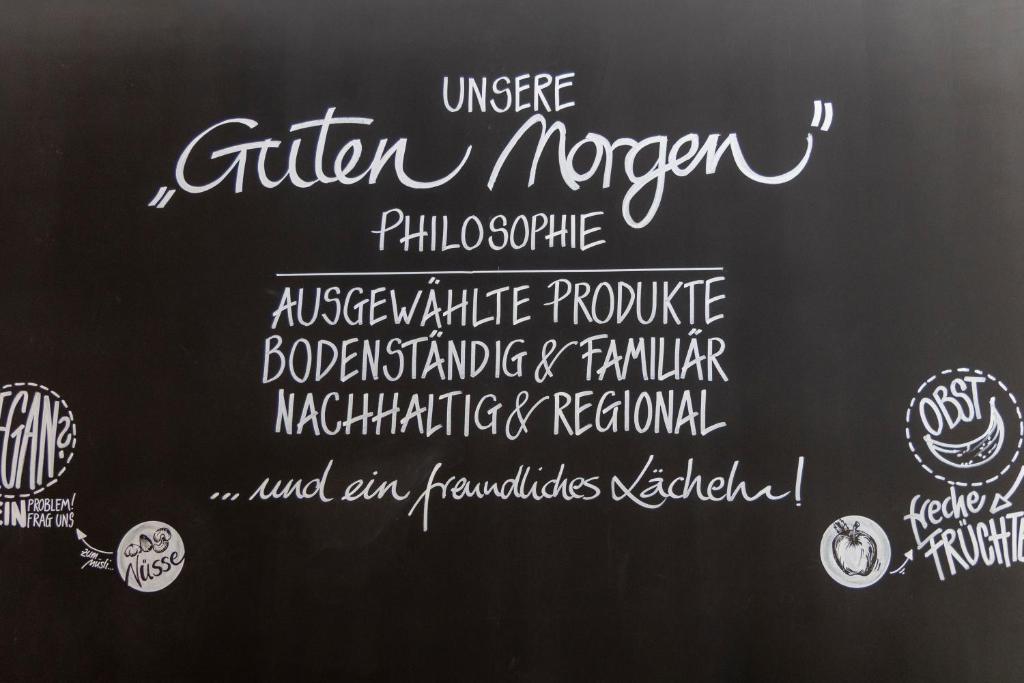 UNSERE
„Guten Morgen”
PHILOSOPHIE
AUSGEWÄHLTE PRODUKTE
BODENSTÄNDIG & FAMILIÄR
NACHHALTIG & REGIONAL
... und ein freundliches Lächeln!
EGAN?
EIN PROBLEM!
FRAG UNS
zum
Müsli...
Nüsse
OBST
freche
FRÜCHTE